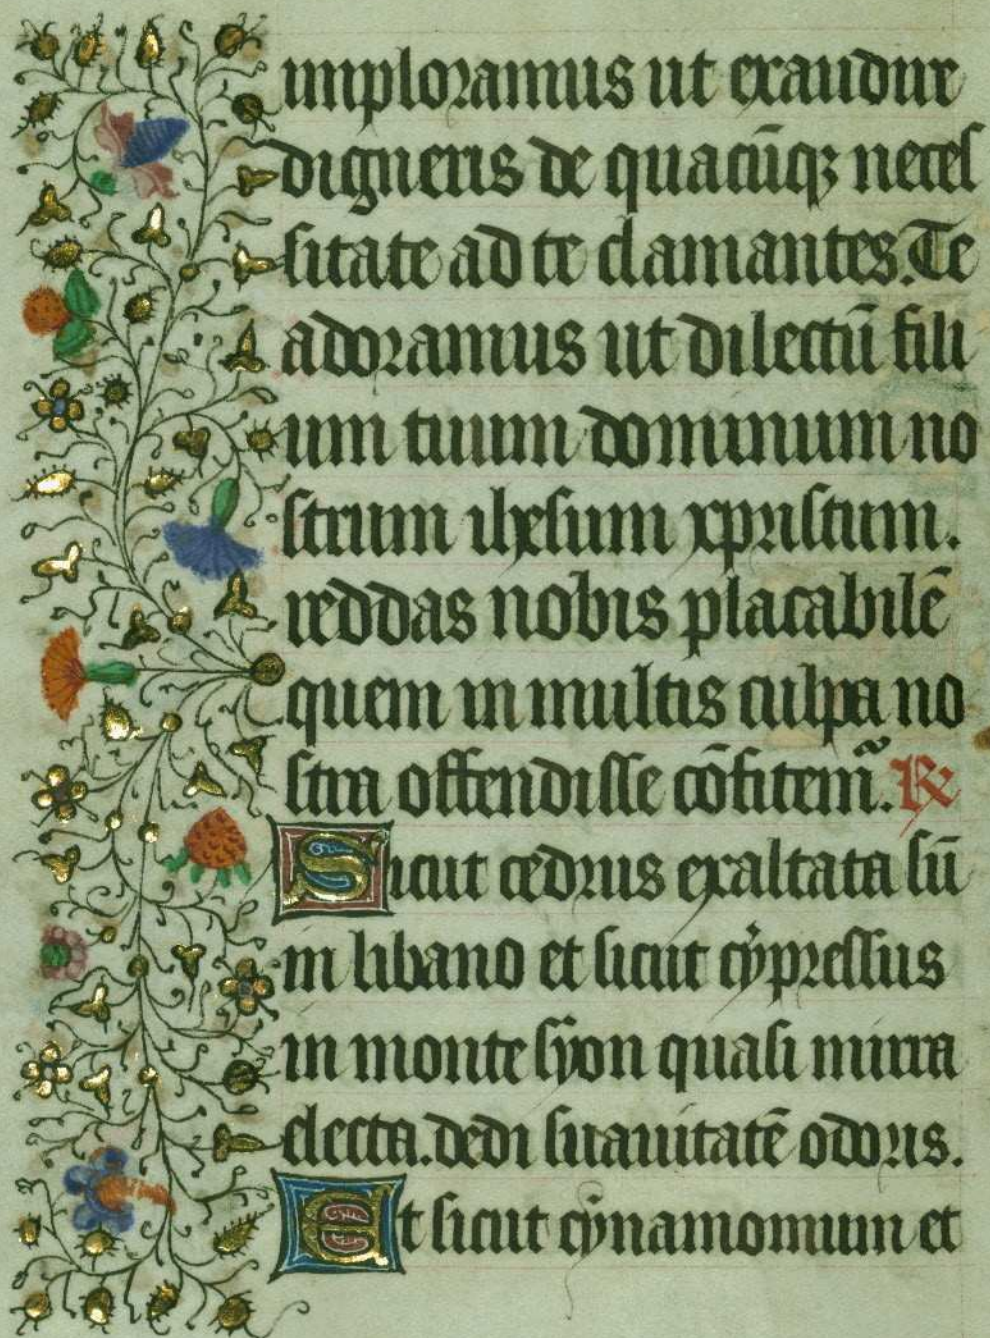 imploramus ut exaudire
digneris de quacūqꝫ neces
sitate ad te clamantes. Te
adoramus ut dilectū fili
um tuum dominum no
strum ihesum xpristum.
reddas nobis placabilē
quem in multis culpa no
stra offendisse cōfitem̃. ℟
Sicut cedrus exaltata sū
in libano et sicut cẏpressus
in monte sẏon quasi mirra
electa. dedi suauitatē odoris.
Et sicut cẏnamomum et